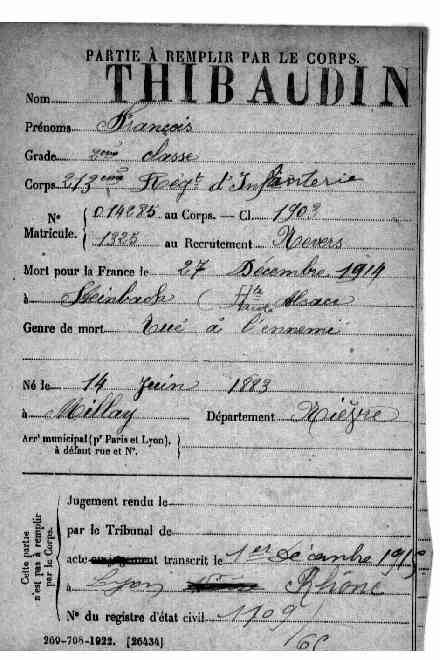 PARTIE À REMPLIR PAR LE CORPS.
Nom THIBAUDIN
Prénoms François
Grade 2ème classe
Corps 213ème Régt d'Infanterie
N° Matricule. { 014285 au Corps. — Cl. 1903
1325 au Recrutement Nevers
Mort pour la France le 27 Décembre 1914
à Steinbach (Hte Alsace
Genre de mort Tué à l'ennemi
Né le 14 Juin 1883
à Millay Département Nièvre
Arrt municipal (pr Paris et Lyon), à défaut rue et N°.
Cette partie n'est pas à remplir par le Corps.
Jugement rendu le
par le Tribunal de
acte ou jugement transcrit le 1er Décembre 1915
à Lyon Rhône
N° du registre d'état civil 1709/65
269-708-1922. [26434]